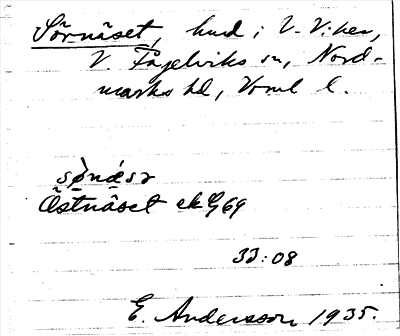 Sörnäset, hmd i V. Viker,
V. Fågelviks sn, Nord-
marks hd, Vrml l.
Östnäset ek G 69
3J:08
E. Andersson 1935.